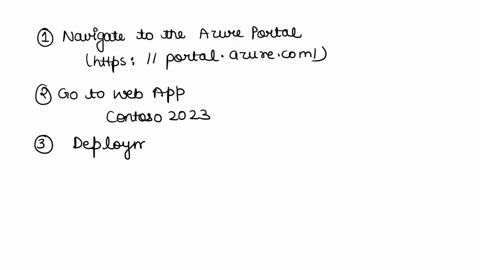 ① Navigate to the Azure Portal
(https: // portal.azure.com/)
② Go to Web App
Contoso 2023
③ Deploym